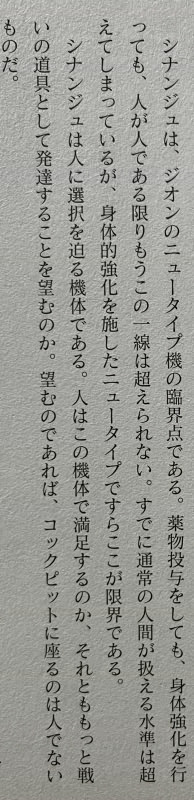 シナンジュは、ジオンのニュータイプ機の臨界点である。薬物投与をしても、身体強化を行
っても、人が人である限りもうこの一線は超えられない。すでに通常の人間が扱える水準は超
えてしまっているが、身体的強化を施したニュータイプですらここが限界である。
シナンジュは人に選択を迫る機体である。人はこの機体で満足するのか、それとももっと戦
いの道具として発達することを望むのか。望むのであれば、コックピットに座るのは人でない
ものだ。